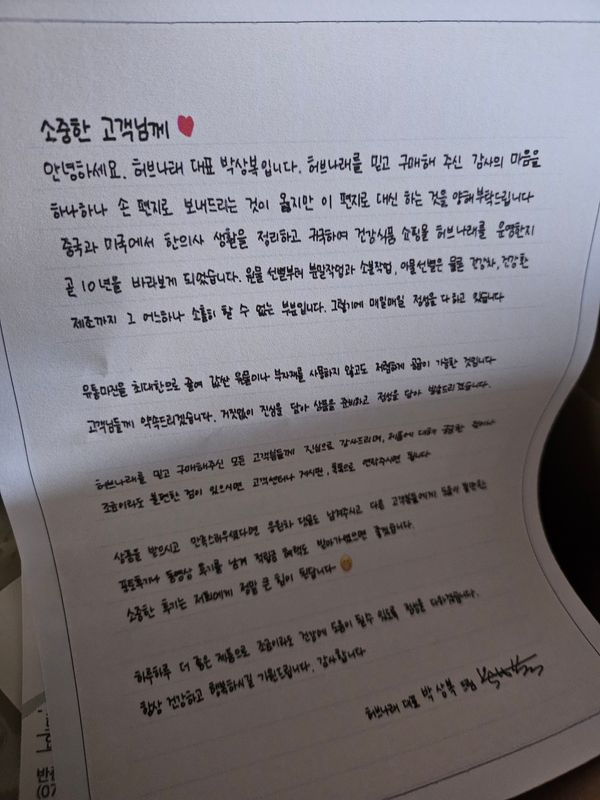 소중한 고객님께
안녕하세요. 허브나래 대표 박상복입니다. 허브나래를 믿고 구매해 주신 감사의 마음을
하나하나 손 편지로 보내드리는 것이 옳지만 이 편지로 대신 하는 것을 양해부탁드립니다
중국과 미국에서 한의사 생활을 정리하고 귀국하여 건강식품 쇼핑몰 허브나래를 운영한지
곧 10년을 바라보게 되었습니다. 원물 선별부터 분말작업과 소분작업, 이물선별은 물론 건강차, 건강환
제조까지 그 어느하나 소홀히 할 수 없는 부분입니다. 그렇기에 매일매일 정성을 다하고 있습니다
유통마진을 최대한으로 줄여 값싼 원물이나 부자재를 사용하지 않고도 저렴하게 공급이 가능한 것입니다
고객님들께 약속드리겠습니다. 거짓없이 진심을 담아 상품을 준비하고 정성을 담아 발송드리겠습니다.
허브나래를 믿고 구매해주신 모든 고객님들께 진심으로 감사드리며, 제품에 대해 궁금한 점이나
조금이라도 불편한 점이 있으시면 고객센터나 게시판, 톡톡으로 연락주시면 됩니다
상품을 받으시고 만족스러우셨다면 응원차 댓글도 남겨주시고 다른 고객님들에게 도움이 될만한
포토후기나 동영상 후기를 남겨 적립금 혜택도 받아가셨으면 좋겠습니다.
소중한 후기는 저희에게 정말 큰 힘이 된답니다
하루하루 더 좋은 제품으로 조금이라도 건강에 도움이 될수 있도록 정성을 다하겠습니다.
항상 건강하고 행복하시길 기원드립니다. 감사합니다
허브나래 대표 박 상 복 드림